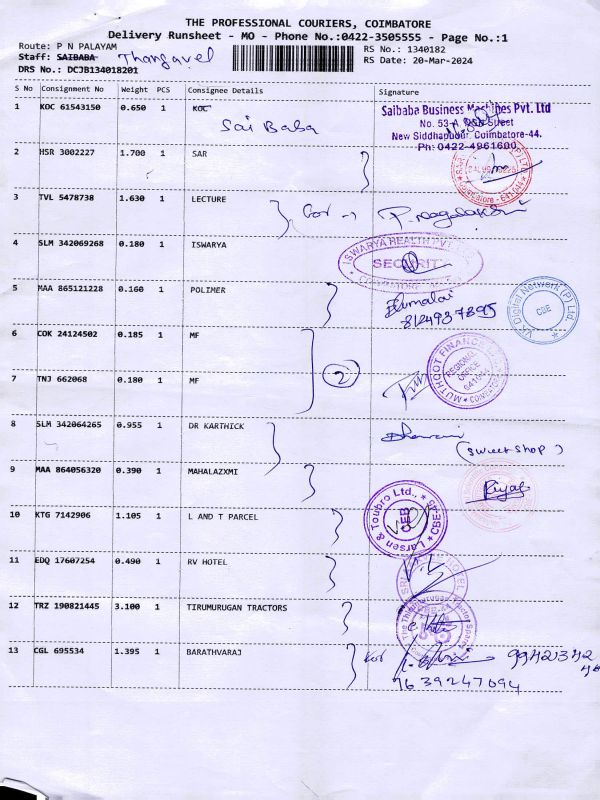 THE PROFESSIONAL COURIERS, COIMBATORE
Delivery Runsheet - MO - Phone No.:0422-3505555 - Page No.:1
Route: P N PALAYAM
RS No.: 1340182
Staff: SAIBABA Thangavel
RS Date: 20-Mar-2024
DRS No.: DCJB134018201
S No Consignment No Weight PCS Consignee Details Signature
1 KOC 61543150 0.650 1 KOC
Sai Baba
Saibaba Business Machines Pvt. Ltd
New Siddhapudur, Coimbatore-44.
Ph: 0422-4961600
2 HSR 3002227 1.700 1 SAR
3 TVL 5478738 1.630 1 LECTURE
4 SLM 342069268 0.180 1 ISWARYA
ISWARYA HEALTH PVT
SECURITY
5 MAA 865121228 0.160 1 POLIMER
8124937895
VK Digital Network (P) Ltd.
CBE
6 COK 24124502 0.185 1 MF
7 TNJ 662068 0.180 1 MF
2
MUTHOOT FINANCE
REGIONAL OFFICE
641044
8 SLM 342064265 0.955 1 DR KARTHICK
(sweet shop)
9 MAA 864056320 0.390 1 MAHALAZXMI
10 KTG 7142906 1.105 1 L AND T PARCEL
Larsen & Toubro Ltd.,
CBE-45
11 EDQ 17607254 0.490 1 RV HOTEL
12 TRZ 190821445 3.100 1 TIRUMURUGAN TRACTORS
13 CGL 695534 1.395 1 BARATHVARAJ
7639247094